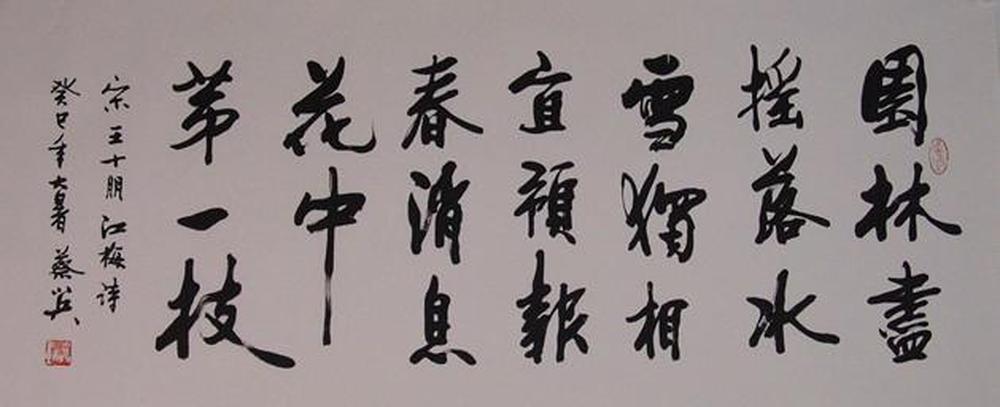 園林盡
摇落冰
雪獨相
宜預報
春消息
花中
苐一枝
宋王十朋江梅诗
癸巳年大暑蔡